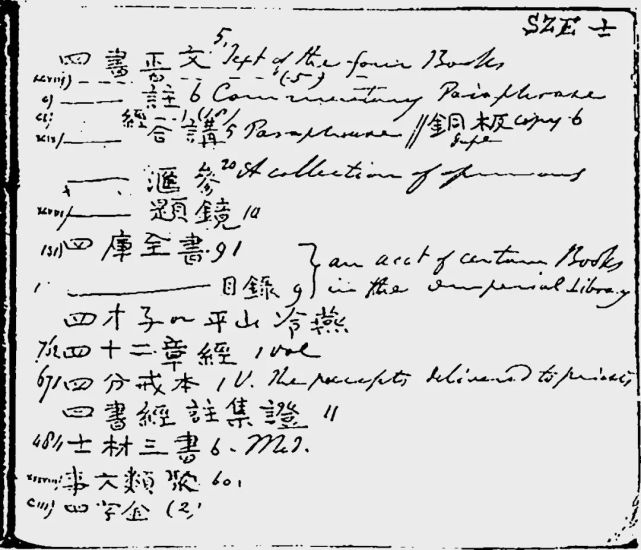 SZE 士
四書正文 5, Text of the four Books
註 6 Commentary Paraphrase
經合講 5 Paraphrase // 銅板 copy 6
滙參 20 A collection of opinions
題鏡 10
四庫全書 91 } an acct of certain Books
目錄 9 } in the imperial Library
四才子 平山冷燕
四十二章經 1 vol
671 四分戒本 1 V. The precepts delivered to priests
四書經註集證 11
484 士材三書 6. Med.
事文類聚 60,
四字金 (2)